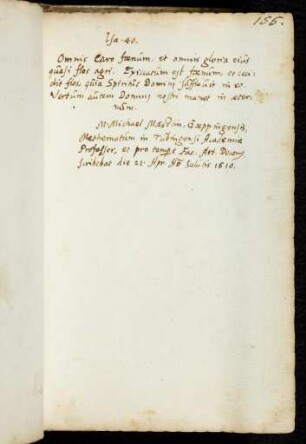 155.
Isa. 40.
Omnis Caro foenum, et omnis gloria eius
quasi flos agri. Exiccatum est foenum, et ceci-
dit flos, quia Spiritus Domini sufflavit in eo.
Verbum autem Domini nostri manet in aeter-
num.
M. Michael Maestlin, Goeppingensis,
Mathematum in Tubingensi Academia
Professor, et pro tempe Fac. Art. Decanus
scribebat die 22. Apr. Ao Salutis 1610.